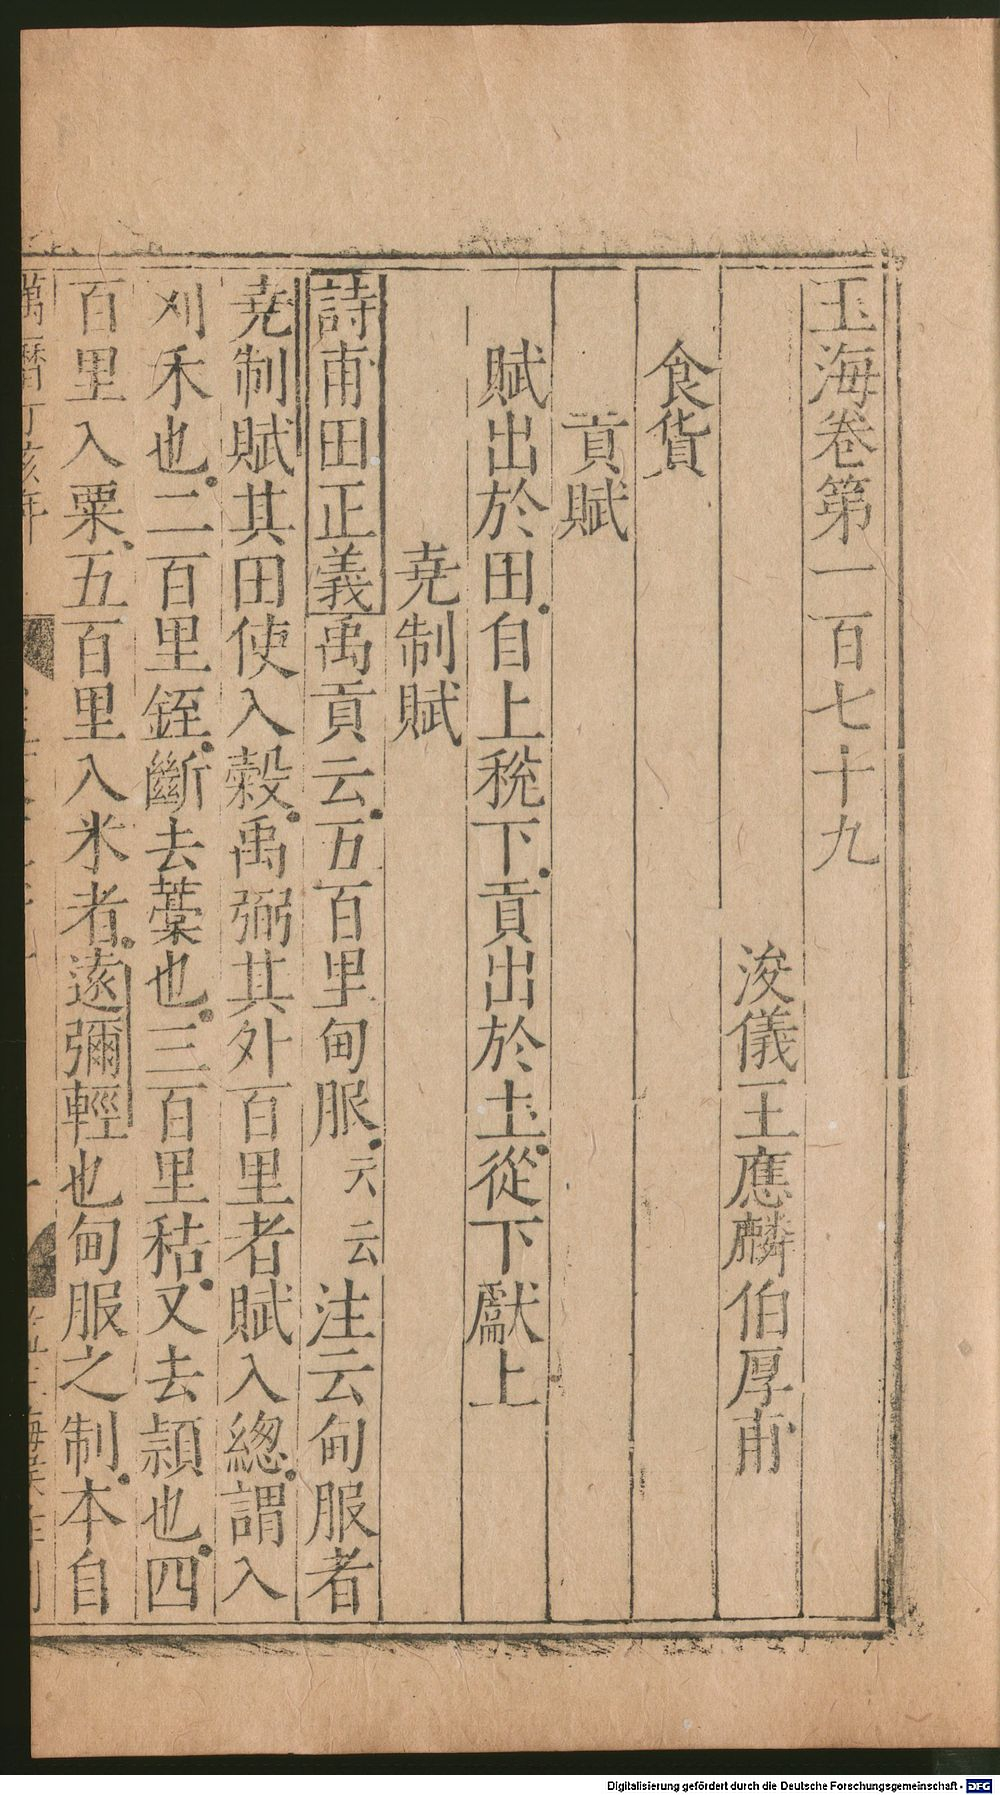 玉海卷第一百七十九
浚儀王應麟伯厚甫
食貨
貢賦
賦出於田自上稅下貢出於土從下獻上
堯制賦
詩甫田正義禹貢云五百里甸服云云注云甸服者
堯制賦其田使入穀禹弼其外百里者賦入緫謂入
刈禾也二百里銍斷去藁也三百里秸又去頴也四
百里入粟五百里入米者遠彌輕也甸服之制本自
萬曆丁亥年
Digitalisierung gefördert durch die Deutsche Forschungsgemeinschaft - DFG